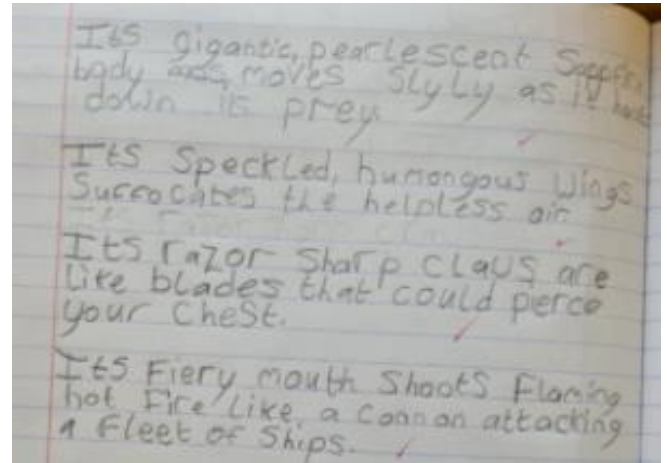 Its gigantic, pearlescent
body moves Slyly as it
down its prey
Its Speckled, humongous Wings
Surrocates the helpless air
Its razor Sharp claws are
Like blades that could pierce
your Chest.
Its Fiery mouth Shoots Flaming
hot Fire like, a Cannon attacking
a Fleet of Ships.